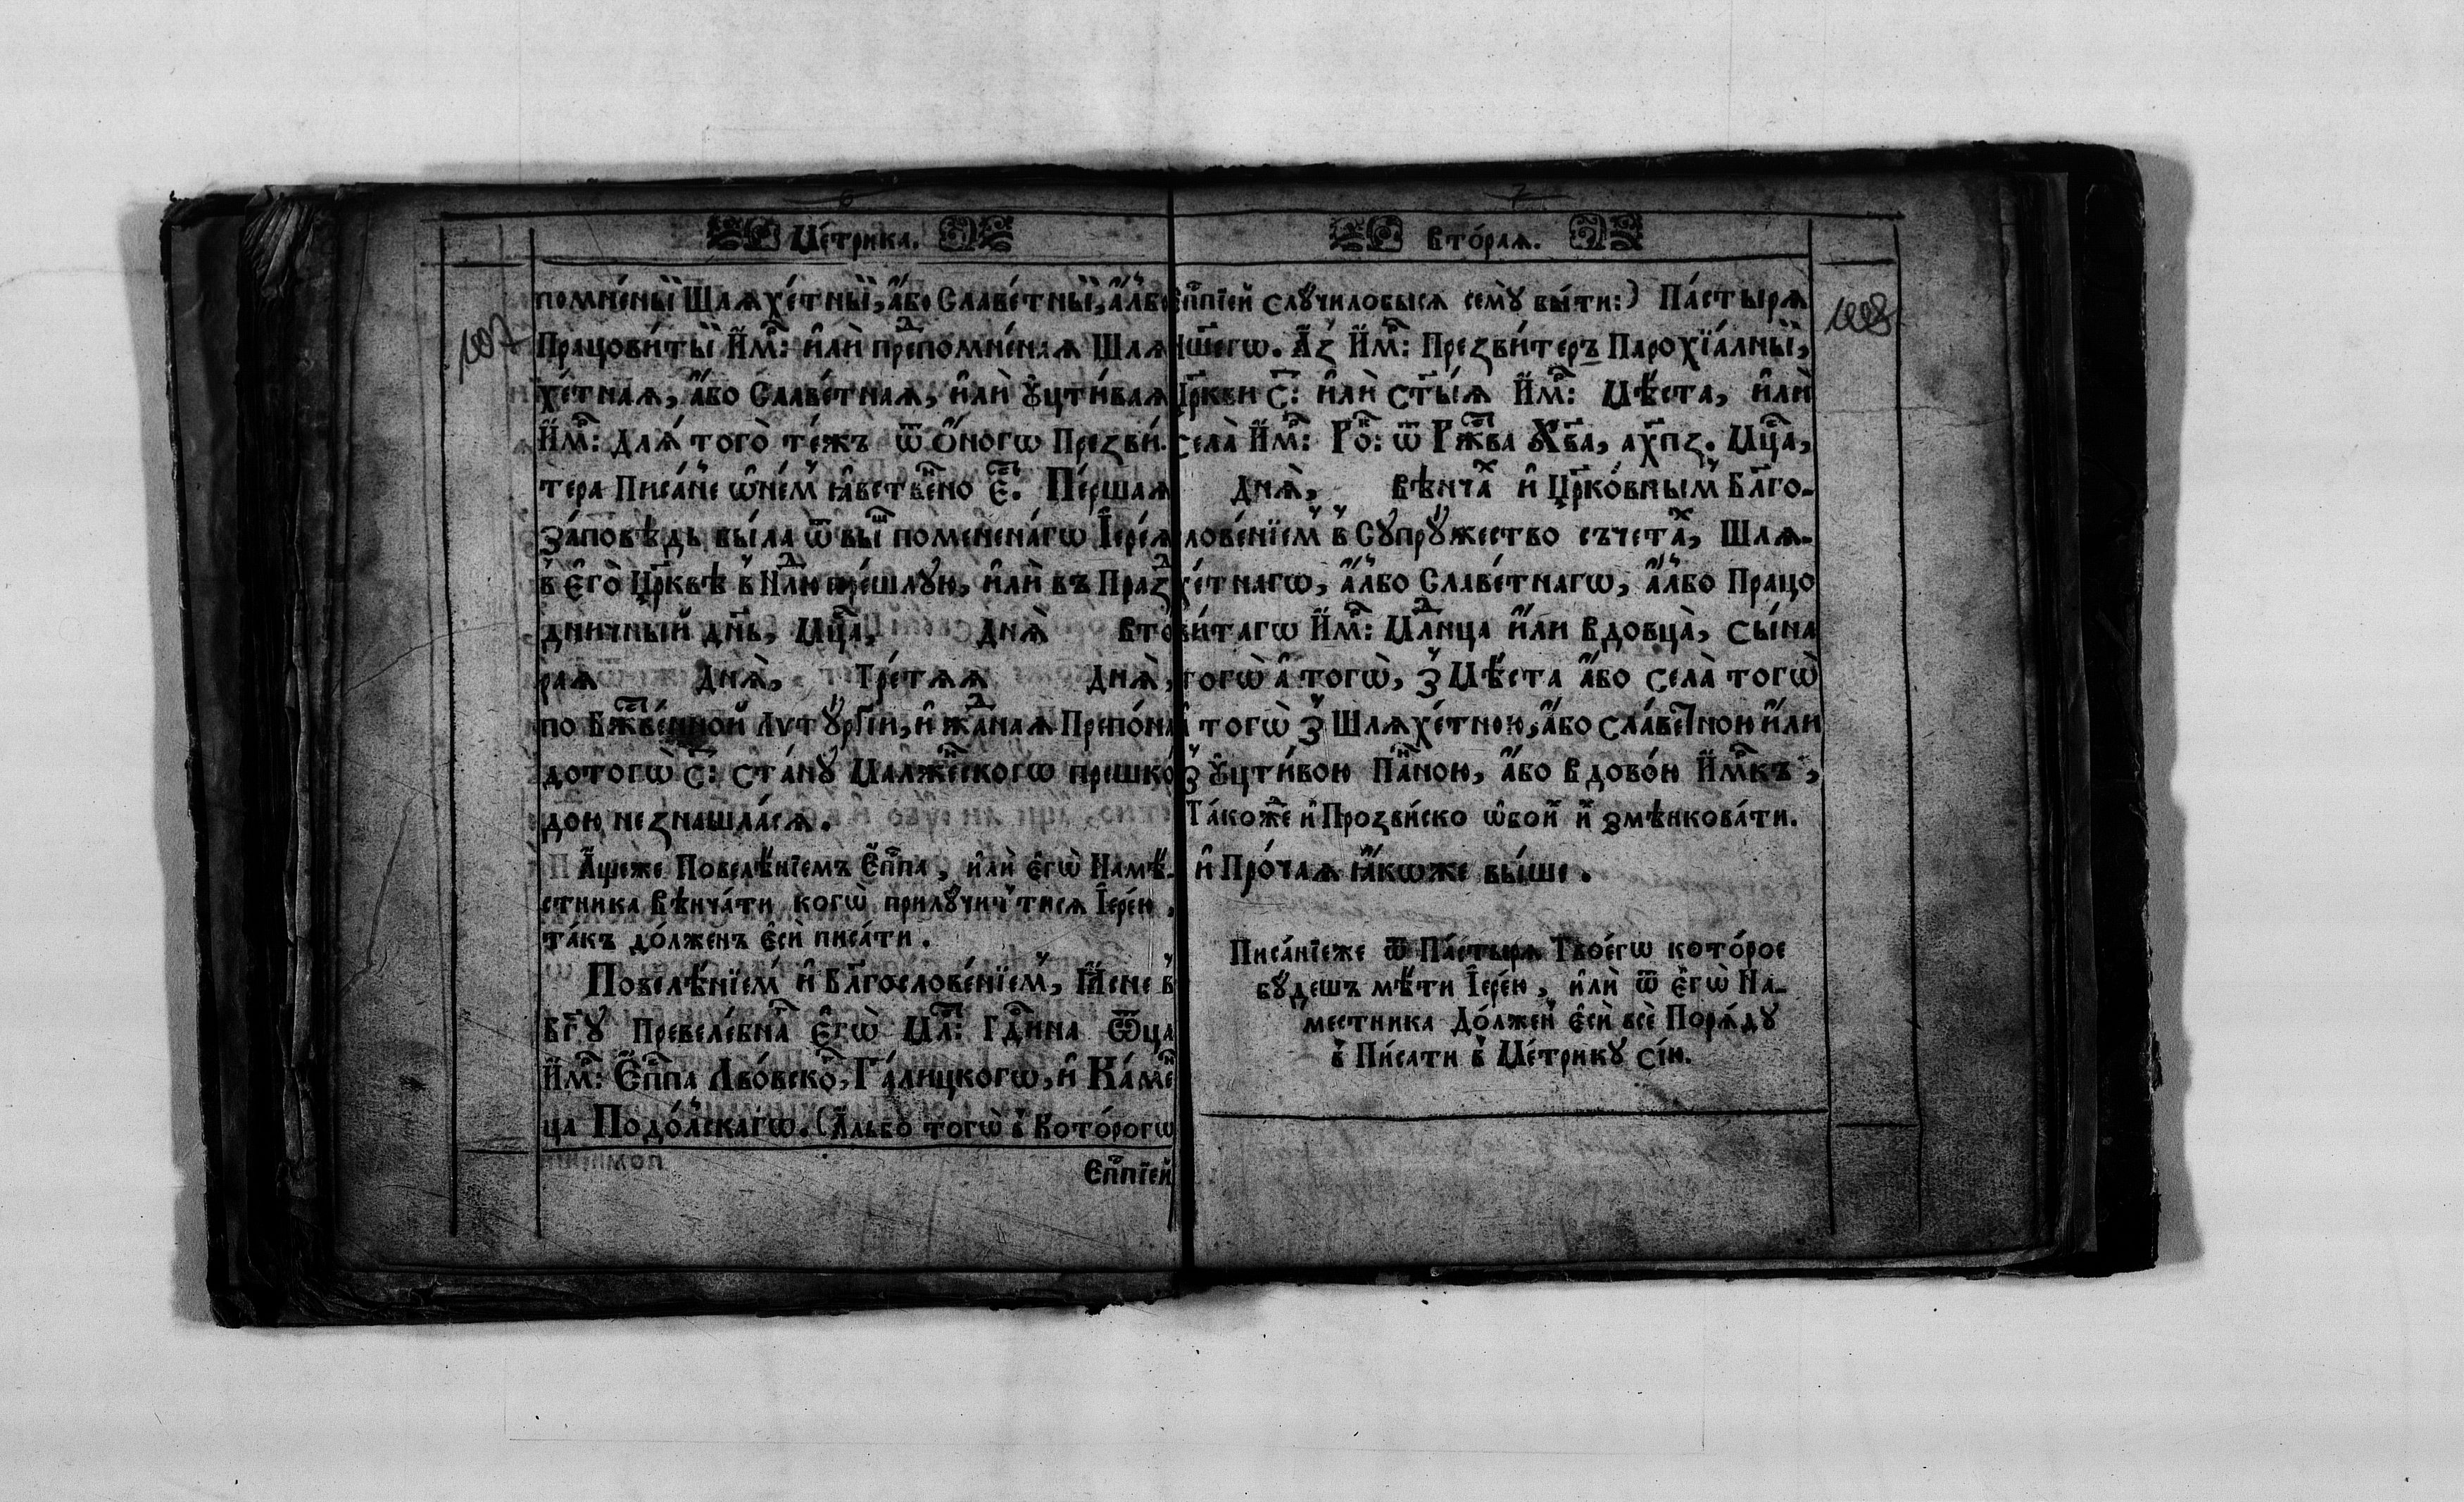 6
Ме́трика.
помне́ный Шляхе́тный, а҆́бо Славе́тный, а҆́лбо
Працови́тый И҆м҃: и҆лѝ препомне́ная Шля
хе́тная, а҆́бо Славе́тная, и҆лѝ Ꙋ҆цти́вая
И҆м҃: Для́ тогѡ̀ те́жъ ѿ О҆́ногѡ Презви́-
тера Писа́не ѡ҆не́м ꙗ҆́вствено є҆́: Пе́ршая
За́повѣдь была̀ ѿ вы́ш помененагѡ І҆ере́я
в Е҆гѡ̀ Цр҃квѣ в Нд҃лю пре́шлꙋю, и҆лѝ въ Праз
дничный дн҃ь, Мц҃а, Дня̀ Вто
рая Дня̀, Тре́тяя Дня̀,
по Бж҃ве́нной Лѵтꙋргі́и, и҆ жа́дная Препо́на
дотогѡ̀ С҃: Ста́нꙋ Малже́нскогѡ прешко́
дою незнашла́ся.
А҆́щеже Повелѣ́нїемъ Е҆пп҃а, и҆лѝ є҆гѡ̀ Намѣ́-
стника Вѣнча́ти когѡ̀ прилꙋчи́тися І҆ере́ю,
та́къ до́лженъ є҆сѝ писа́ти.
Повелѣ́нїем и҆ Бл҃гослове́нїем, Ꙗ҆́сне в
Бг҃ꙋ Превеле́бна Е҆гѡ̀ Мл҃: Гд҃ина Ѿца
И҆м҃: Е҆пп҃а Лво́вско, Га́лицкогѡ, и҆ Ка́ме
ца Подо́лскагѡ. (А҆лбо тогѡ̀ в Кото́рогѡ
Е҆пп҃їей
107
7
Вто́рая.
Е҆пп҃їей слꙋ́чилобыся семꙋ̀ бы́ти:) Па́стыря
Н҃шегѡ. А҆́з И҆м҃: Презви́теръ Парохїа́лный,
Цр҃кви С҃: и҆лѝ ст҃ы́я И҆м҃: Мѣ́ста, и҆лѝ
Села̀ И҆м҃: Ро҃: ѿ Рж҃ва Хв҃а, ах҃пз. Мц҃а,
Дня̀, Вѣнча́ и҆ Цр҃ко́вным Бл҃го-
лове́нїем в Сꙋпрꙋ́жество съчета́, Шля-
хе́тнагѡ, а҆́лбо Славе́тнагѡ, а҆́лбо Працо
ви́тагѡ И҆м҃: Млд҃нца и҆лѝ Вдовца̀, сы́на
тогѡ̀ а҆ тогѡ̀, З Мѣ́ста а҆́бо села̀ тогѡ̀
а҆ тогѡ̀ З Шляхе́тною, а҆́бо сла́ветною и҆лѝ
З Ꙋ҆цти́вою Па́нною, а҆́бо Вдово́ю И҆м҃къ,
Та́коже и҆ Прозви́ско ѡ҆бои́ и҆́х змѣнкова́ти.
и҆ Про́чая ꙗ҆́кѡже вы́ше.
Писа́нїеже ѿ Па́стыря Твоегѡ̀ кото́рое
бꙋ́дешъ мѣ́ти І҆ере́ю, и҆лѝ ѿ є҆гѡ̀ На-
местника До́лжен є҆сѝ всѐ Поря́дꙋ
в Пи́сати в Ме́трикꙋ сїю̀.
108